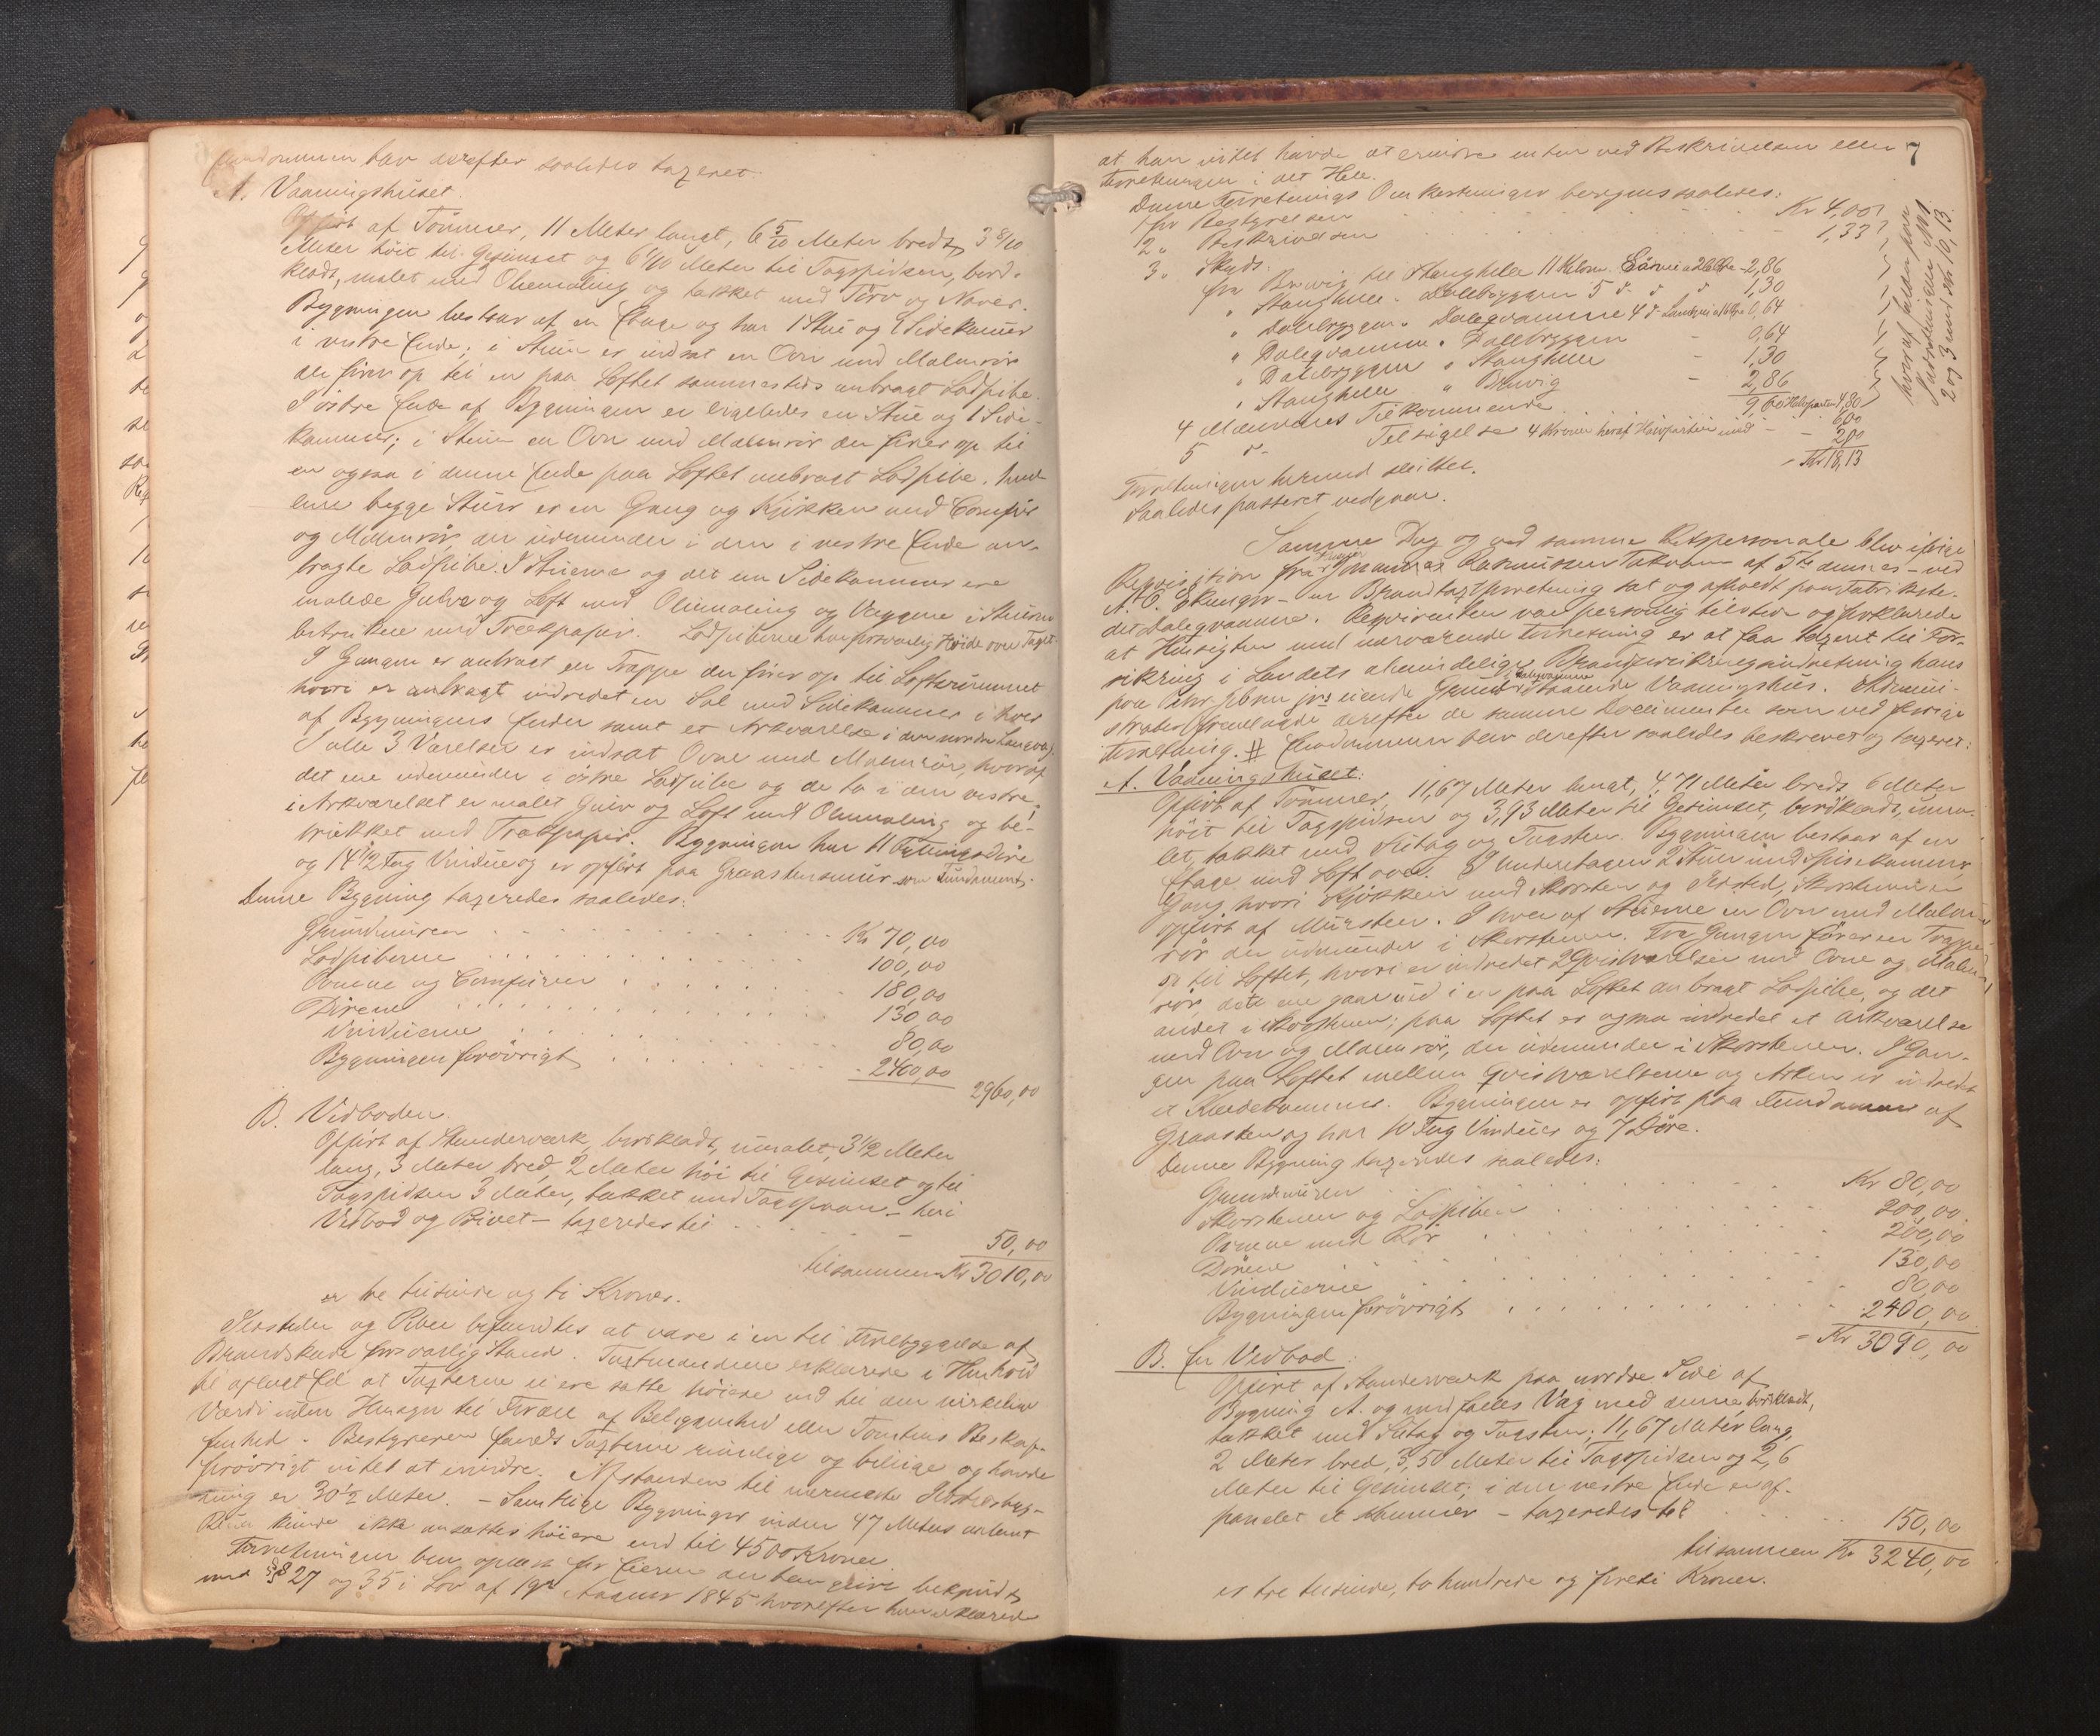 Eiendommen blev derefter saaledes taxeret:
A. Vaaningshuset.
Opført af Tømmer, 11 Meter langt, 6 5/10 Meter bredt, 3 8/10
Meter høit til Gesimset og 6 Meter til Tagspidsen, bord-
klædt, malet med Oliemaling og tækket med Törv og Næver.
Bygningen bestaar af en Etage og har 1 Stue og 1 Sidekammer
i vestre Ende; i Stuen er indsat en Ovn med Malmrör
der fører op til en paa Loftet sammesteds anbragt Lodpibe.
I østre Ende af Bygningen er ligeledes en Stue og 1 Side-
kammer; i Stuen en Ovn med Malmrør der fører op til
en ogsaa i denne Ende paa Loftet anbragt Lodpibe. Mel-
lem begge Stuer er en Gang og Kjøkken med Comfür
og Malmrör, der udmunder i den i vestre Ende an-
bragte Lodpibe. I Stuerne og det ene Sidekammer ere
malede Gulve og Loft med Oliemaling og Væggene i Stuerne
betrukne med Trækpapir. Lodpiberne har forsvarlig Høide over Taget.
I Gangen er anbragt en Trappe der fører op til Loftsrummet
hvori er anbragt indredet en Sal med Sidekammer i hver
af Bygningens Ender samt et Arkværelse i den nordre Langvæg.
I alle 3 Værelser er indsat Ovne med Malmrör, hvoraf
det ene udmunder i østre Lodpibe og de to i den vestre.
i Arkværelset er malet Gulv og Loft med Oliemaling og be-
trukket med Trækpapir. Bygningen har 11 Fyllingsdöre
og 14 1/2 Fag Vinduer og er opført paa Graastensmuur som Fundament.
Denne Bygning taxeredes saaledes:
Grundmuren Kr 70,00
Lodpiberne 100,00
Ovnene og Comfüren 180,00
Dörene 130,00
Vinduerne 80,00
Bygningen forøvrigt 2400,00
2960,00
B. Vedboden.
Opført af Stenderværk, bordklædt, umalet, 3 1/2 Meter
lang, 3 Meter bred, 2 Meter høi til Gesimset og til
Tagspidsen 3 Meter, tækket med Tagspaan – heri
Vedbod og Privet – taxeredes til 50,00
tilsammen Kr 3010,00
er tre tusinde og ti Kroner.
Ildsteder og Piber befandtes at være i en til Forebyggelse af
Brandskade forsvarlig Stand. Taxtmændene erklærede i Henhold
til aflagt Ed at Taxterne ei ere satte høiere end til den virkelige
Værdi uden Hensyn til Fordele af Beliggenhed eller Tomtens Beskaf-
fenhed. Bestyreren fandt Taxterne rimelige og billige og havde
forøvrigt intet at erindre. Afstanden til nærmeste Ildstedsbyg-
ning er 30 1/2 Meter. – Samtlige Bygninger inden 47 Meters Omkreds
kunde ikke ansættes høiere end til 4500 Kroner.
Forretningen blev oplæst for Eieren der blev givet bekjendt
med §§ 27 og 35 i Lov af 19de August 1845 hvorefter han erklærede
7
at han intet havde at erindre enten ved Beskrivelsen eller
Forretningen i det Hele.
Denne Forretnings Omkostninger beregnes saaledes:
1 for Bestyrelsen Kr 4,00
2 " Beskrivelsen 1,33
3 " Skyds:
fra Bruvig til Stanghelle 11 Kilom. Søvei a 26 Øre - 2,86
" Stanghelle " Dalebryggen 5 d. d d 1,30
" Dalebryggen " Dalegvamme 4 d. Landvei a 16 Øre 0,64
" Dalegvamme " Dalebryggen - 0,64
" Dalebryggen " Stanghelle - 1,30
" Stanghelle " Bruvig - 2,86
9,60 Halvparten 4,80
4 Mændenes Tilkommende 6,00
5 d– Tilsigelse 4 Kroner heraf Halvparten med – – 2,00
– Kr 18,13
hvoraf falder paa
Statskassen No 1
2 og 3 med Kr 10,13.
Forretningen hermed sluttet.
Saaledes passeret vedgaaes.
Samme Dag og ved samme Retspersonale blev ifølge
Reqvisition fra Johannes Rasmussen Takvam af 5te dennes – ved
en Brandtaxtforretning sat og afholdt paa Fabrikste-
det Dalegvamme. Reqvirenten var personlig tilstede og forklarede
at Hensigten med nærværende Forretning er at faa taxeret til For-
sikring i Landets almindelige Brandforsikringsindretning hans
paa eiende Grund Dalegvamme staaende Vaaningshus. Admini-
strator fremlagde derefter de samme Documenter som ved forrige
Forretning. # Eiendommen blev derefter saaledes beskrevet og taxeret:
A. Vaaningshuset:
Opført af Tømmer, 11,67 Meter langt, 4,71 Meter bredt 6 Meter
høit til Tagspidsen og 3,93 Meter til Gesimset, bordklædt, uma-
let, tækket med Sutag og Tagsten. Bygningen bestaar af en
Etage med Loft over. I Underetagen 2 Stuer med Spisekammer,
Gang hvori Kjøkken med Skorsten og Ildsted, Skorstenen er
opført af Mursten. I hver af Stuerne en Ovn med Malm-
rør der udmunder i Skorstenen. Fra Gangen fører en Trappe
op til Loftet, hvori er indredet 2 Qvistværelser med Ovne og Malm-
rör, det ene gaar ind i en paa Loftet anbragt Lodpibe, og det
andet i Skorstenen; paa Loftet er ogsaa indredet et Arkværelse
med Ovn og Malmrör, der udmunder i Skorstenen. I Gan-
gen paa Loftet mellem Qvistværelserne og Arken er indredet
et Klædekammer. Bygningen er opført paa Fundament af
Graasten og har 10 Fag Vinduer og 7 Døre.
Denne Bygning taxeredes saaledes:
Grundmuren Kr 80,00
Skorstenen og Lodpiben 200,00
Ovnene med Rör 200,00
Dørene 130,00
Vinduerne 80,00
Bygningen forøvrigt 2400,00
– Kr 3090,00
B. En Vedbod.
Opført af Stenderværk paa nordre Side af
Bygning A. og med fælles Væg med denne, bordklædt,
tækket med Sutag og Tagsten; 11,67 Meter lang,
2 Meter bred, 3,50 Meter til Tagspidsen og 2,6
Meter til Gesimset; i den vestre Ende er af-
panelet et Kammer – taxeredes til 150,00
tilsammen Kr 3240,00
er tre tusinde, to hundrede og firti Kroner.